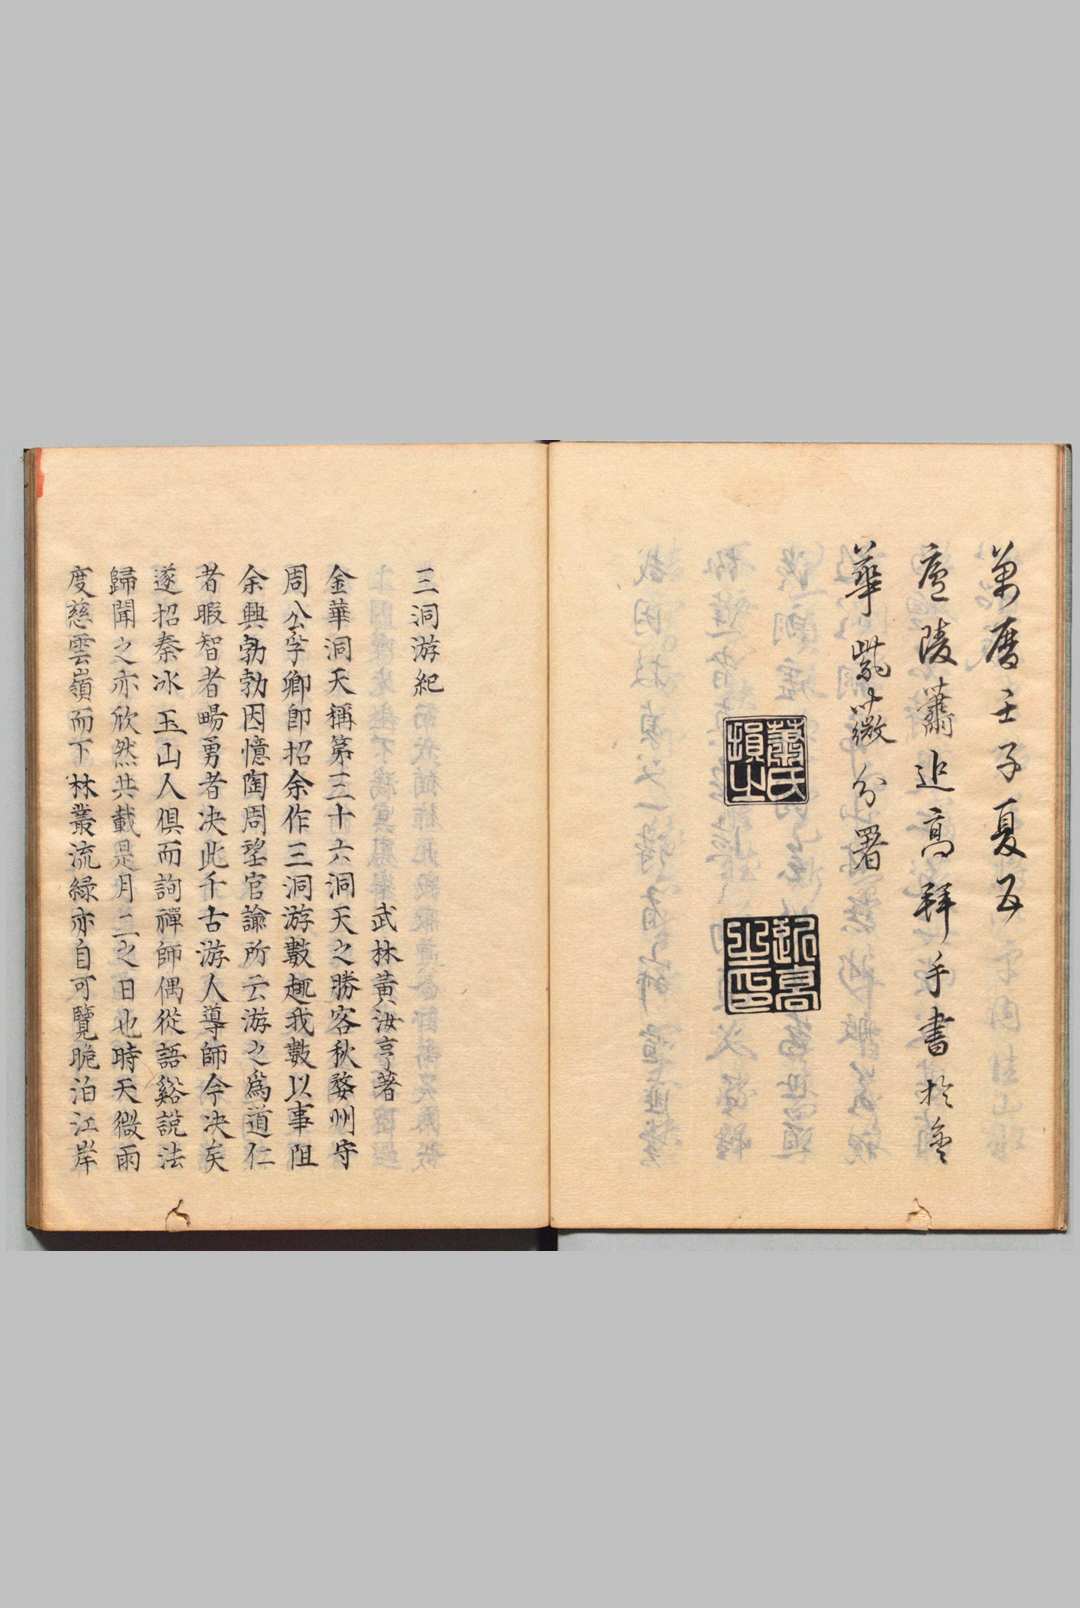 萬曆壬子夏五
廬陵蕭近高拜手書於金
華紫薇分署
蕭氏
近高之印
三洞游紀
武林黃汝亨著
金華洞天稱第三十六洞天之勝客秋婺州守
周公字卿即招余作三洞游數趣我數以事阻
余興勃勃因憶陶周望官諭所云游之為道仁
者暇智者暢勇者決此千古游人導師今決矣
遂招秦冰玉山人俱而詢禪師偶從語谿說法
歸聞之亦欣然共載是月二之日也時天微雨
度慈雲嶺而下林叢流綠亦自可覽晚泊江岸